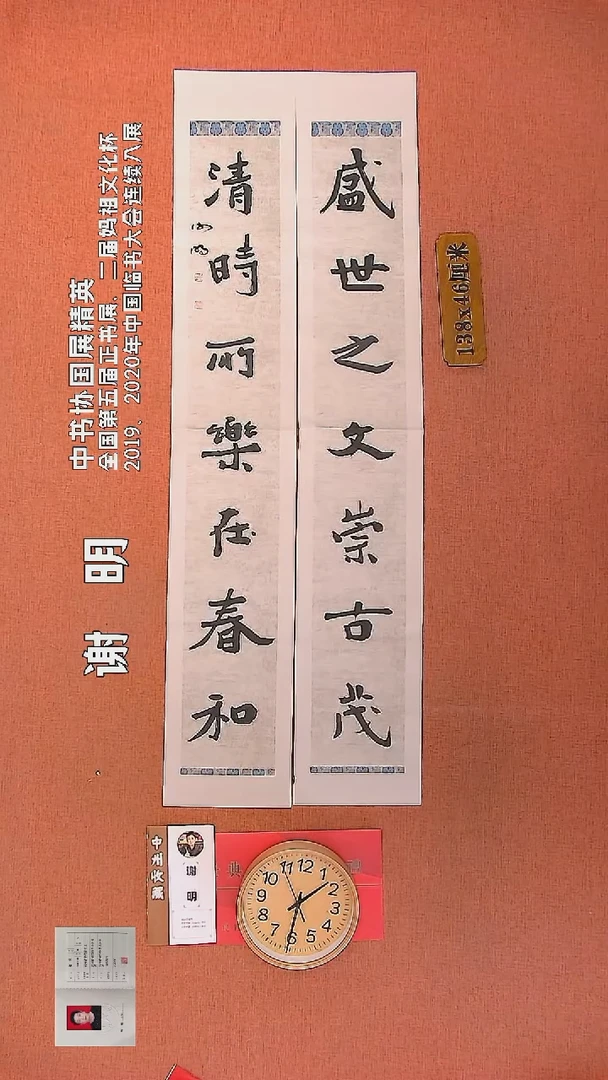 盛世之文崇古茂
清時所樂在春和
謝明
138x46厘米
中书协国展精英
全国第五届正书展、二届妈祖文化杯
2019、2020年中国临书大会连续入展
谢 明
谢明
典
11 12 1
10 2
9 3
8 4
7 6 5